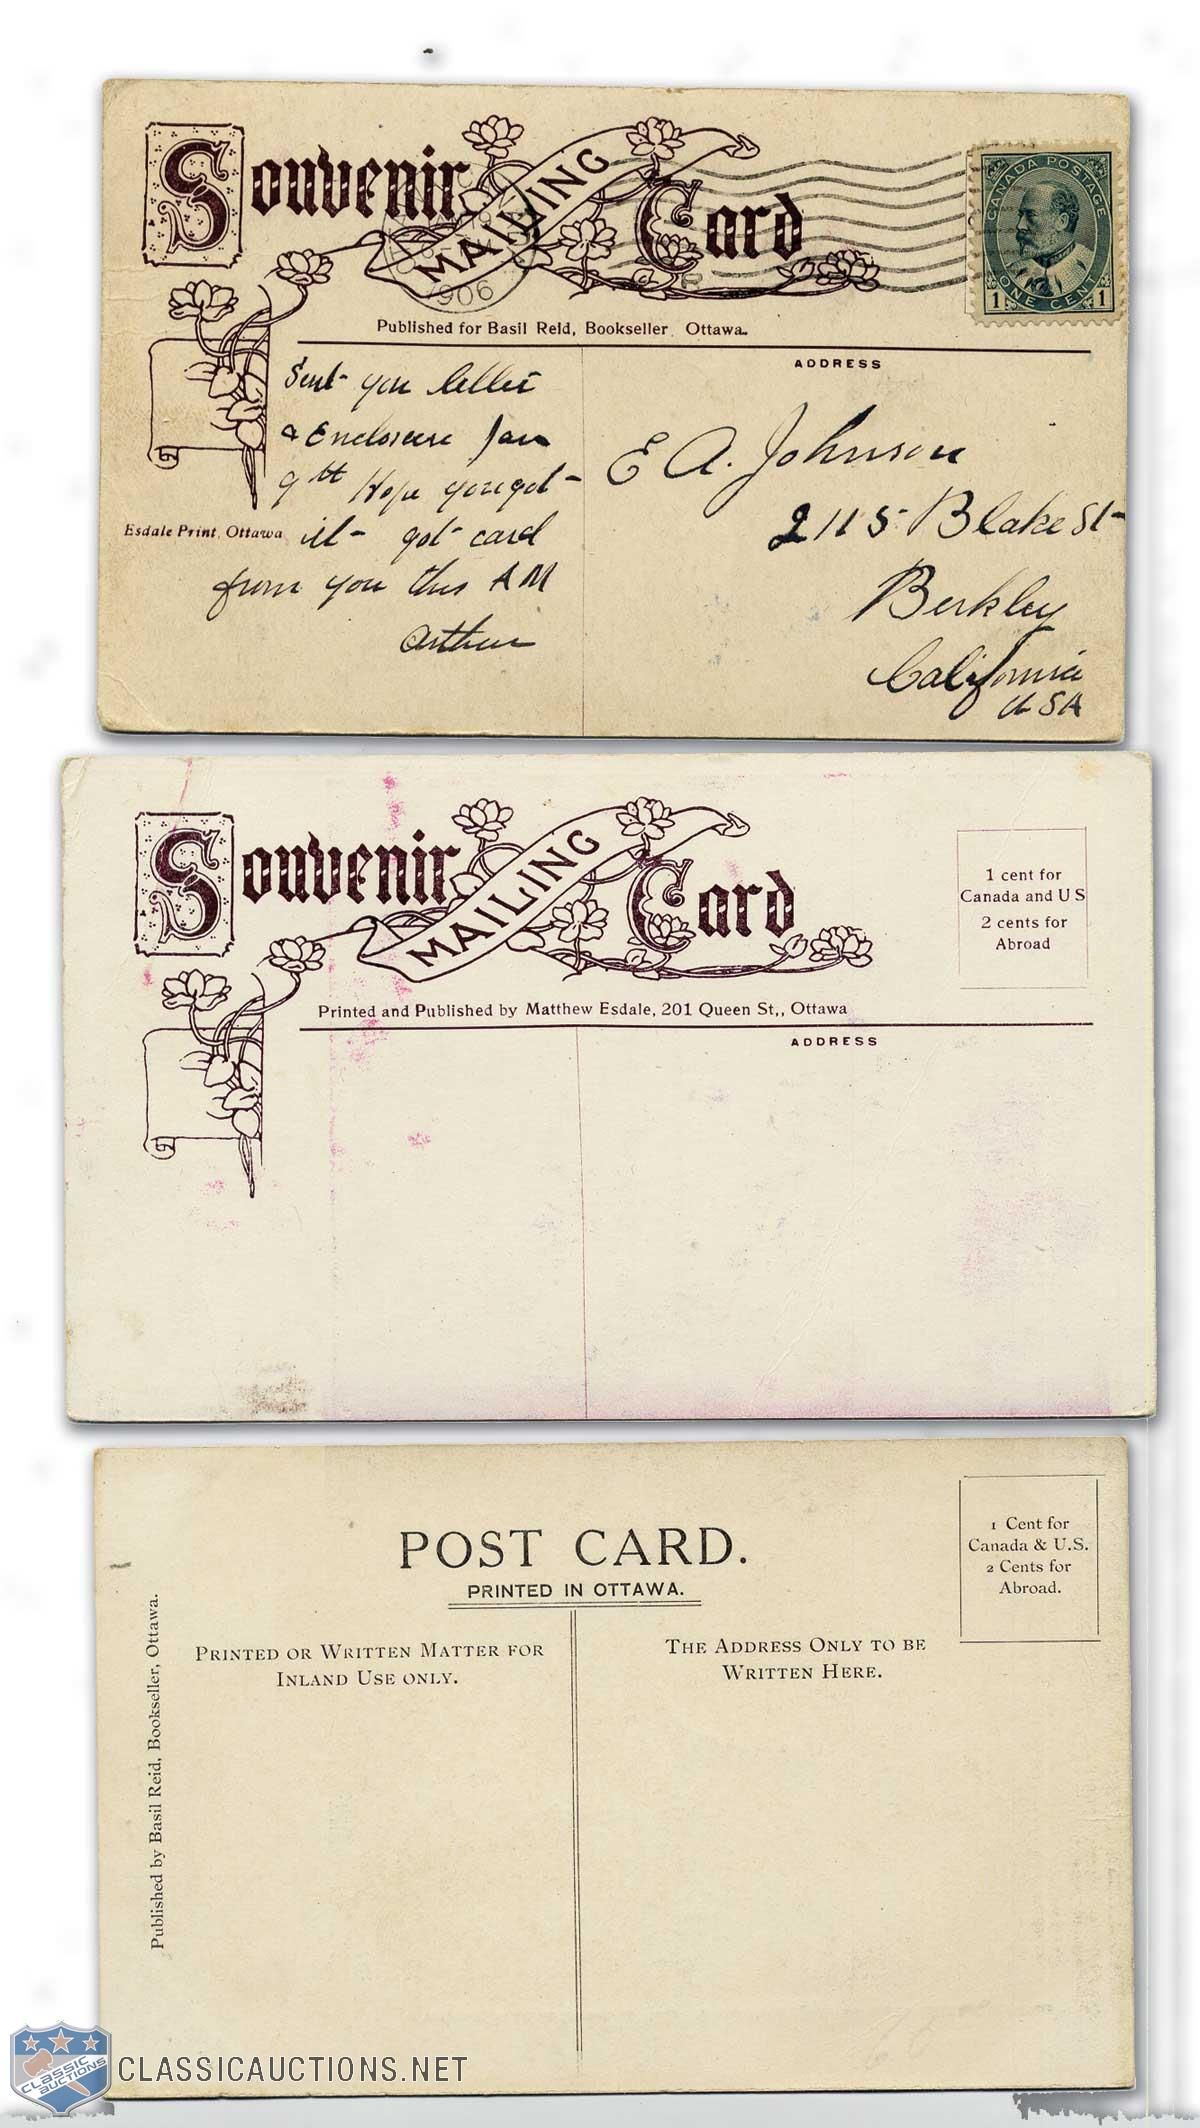 Souvenir MAILING Card
1906
CANADA POSTAGE
1 ONE CENT 1
Published for Basil Reid, Bookseller Ottawa.
ADDRESS
Sent you letter
& Enclosure Jan
9th Hope you got
it - got card
from you this AM
Arthur
Esdale Print, Ottawa
E A. Johnson
2115 Blake St
Berkley
California
USA
Souvenir MAILING Card
1 cent for
Canada and U S
2 cents for
Abroad
Printed and Published by Matthew Esdale, 201 Queen St,, Ottawa
ADDRESS
POST CARD.
PRINTED IN OTTAWA.
1 Cent for
Canada & U.S.
2 Cents for
Abroad.
PRINTED OR WRITTEN MATTER FOR
INLAND USE ONLY.
THE ADDRESS ONLY TO BE
WRITTEN HERE.
Published by Basil Reid, Bookseller, Ottawa.
CLASSIC
AUCTIONS
CLASSICAUCTIONS.NET